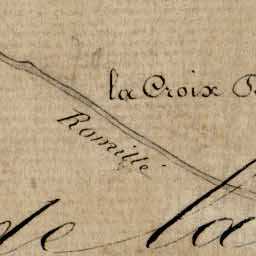 la Croix
Romillé
de la